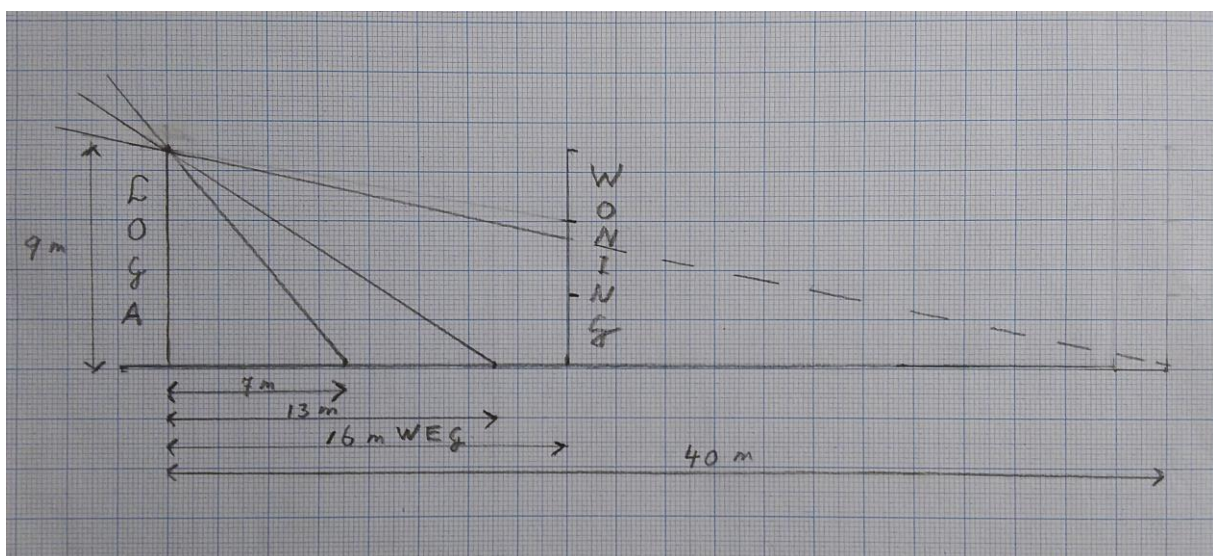 LOGA
WONING
9 m
7 m
13 m
16 m WEG
40 m